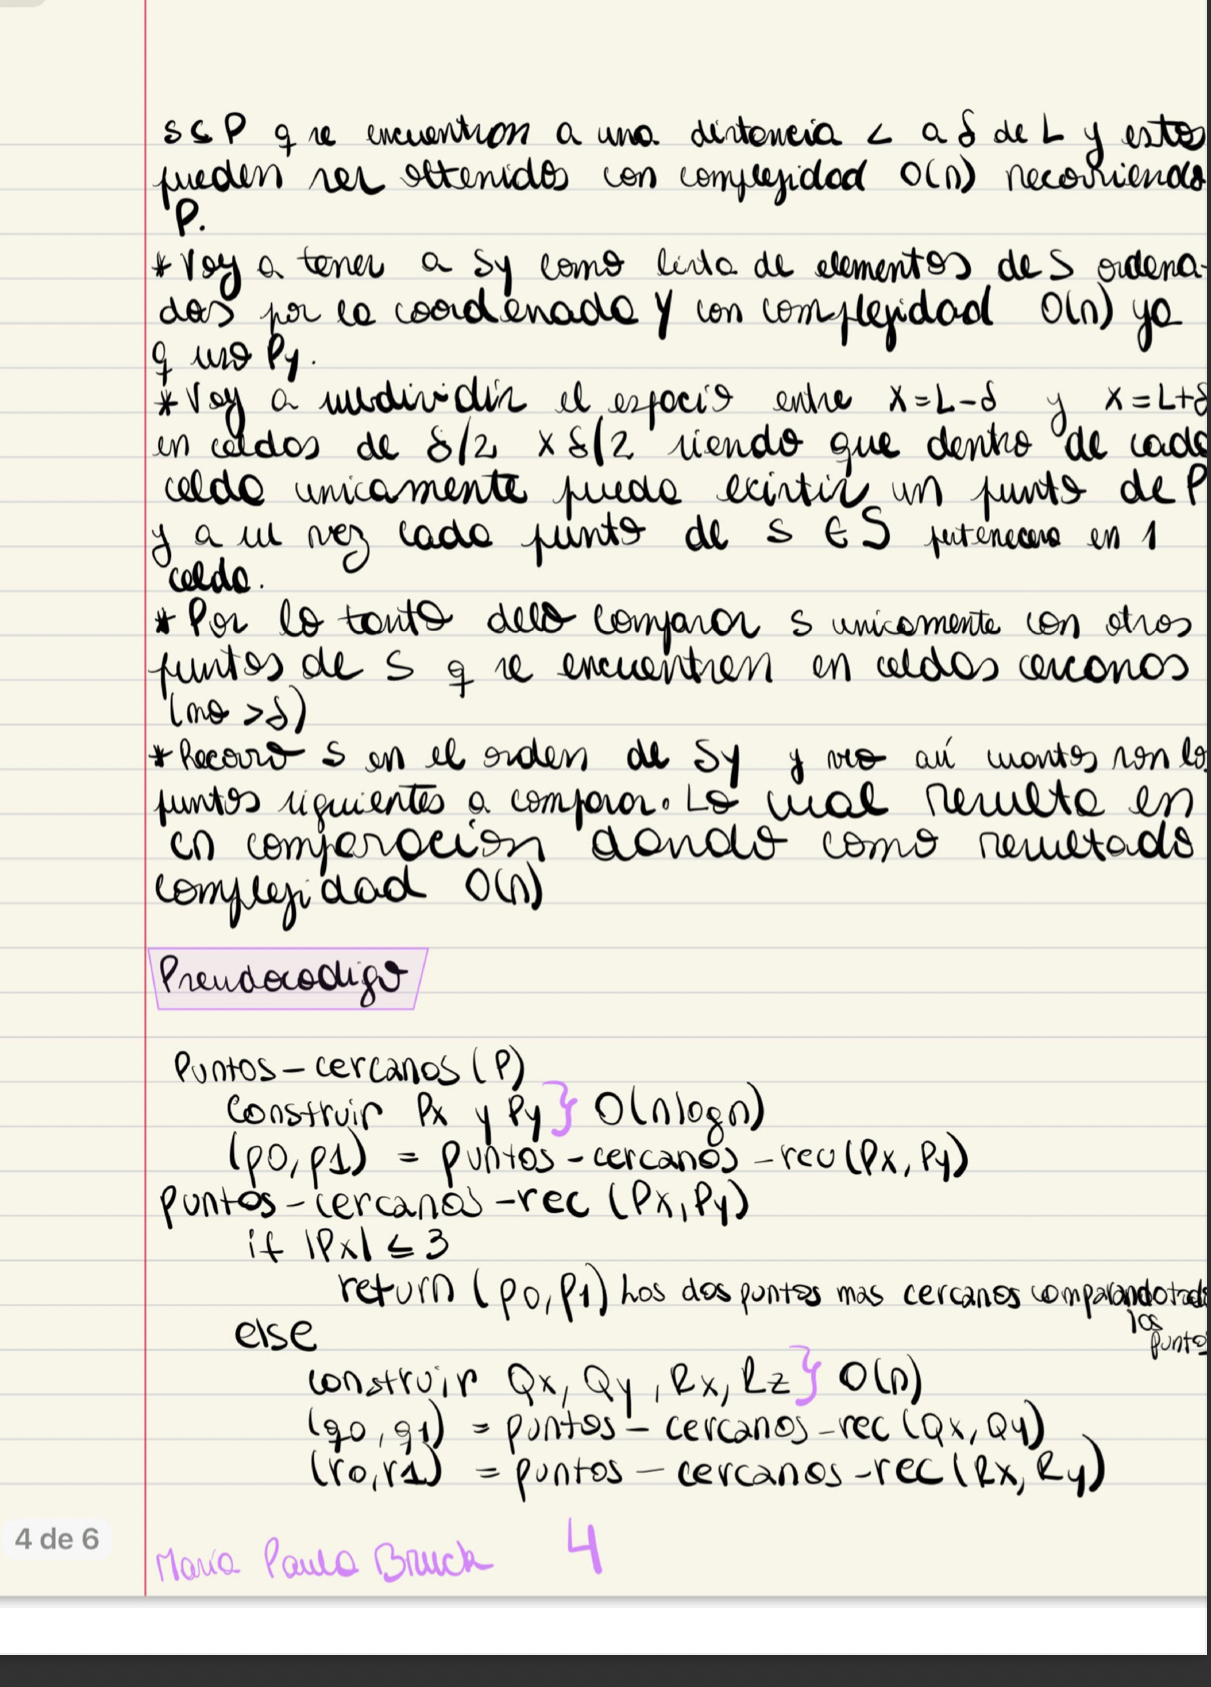 S ⊆ P q se encuentran a una distancia < a δ de L y estos
pueden ser obtenidos con complejidad O(n) recorriendo
P.
* Voy a tener a Sy como lista de elementos de S ordena-
dos por la coordenada Y con complejidad O(n) ya
q uso Py.
* Voy a subdividir el espacio entre X=L-δ y X=L+δ
en celdas de δ/2 x δ/2 siendo que dentro de cada
celda unicamente puede existir un punto de P
y a su vez cada punto de s ∈ S pertenecera en 1
celda.
* Por lo tanto debo comparar s unicamente con otros
puntos de S q se encuentren en celdas cercanas
(no >δ)
* Recorro S en el orden de Sy y veo así cuantos son los
puntos siguientes a comparar. Lo cual resulta en
cn comparación dando como resultado
complejidad O(n)
Pseudocodigo
Puntos-cercanos (P)
construir Px y Py } O(nlogn)
(p0,p1) = puntos-cercanos-rec (Px, Py)
puntos-cercanos-rec (Px,Py)
if |Px| ≤ 3
return (p0,p1) Los dos puntos mas cercanos comparando todos
los
puntos
else
construir Qx, Qy, Rx, Rz } O(n)
(q0,q1) = puntos-cercanos-rec (Qx, Qy)
(r0,r1) = puntos-cercanos-rec (Rx, Ry)
4 de 6
Maria Paula Bruck 4